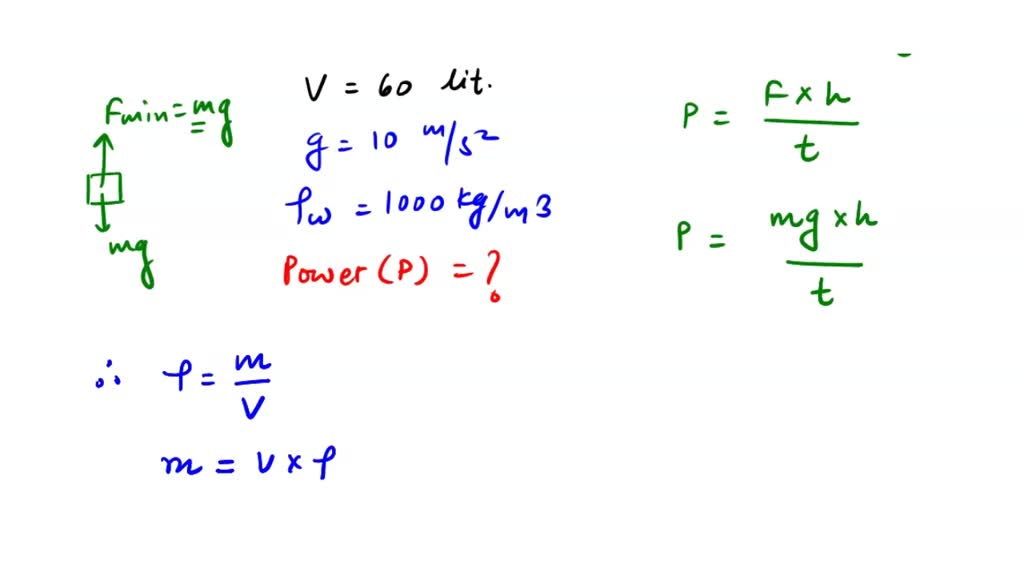 Fmin = mg
mg
V = 60 lit.
g = 10 m/s2
ρw = 1000 kg/m3
Power (P) = ?
P = F × h / t
P = mg × h / t
∴ ρ = m / V
m = V × ρ